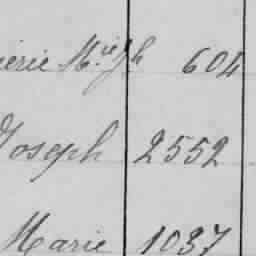 érie M.ie Jh 604
Joseph 2552
Marie 1037